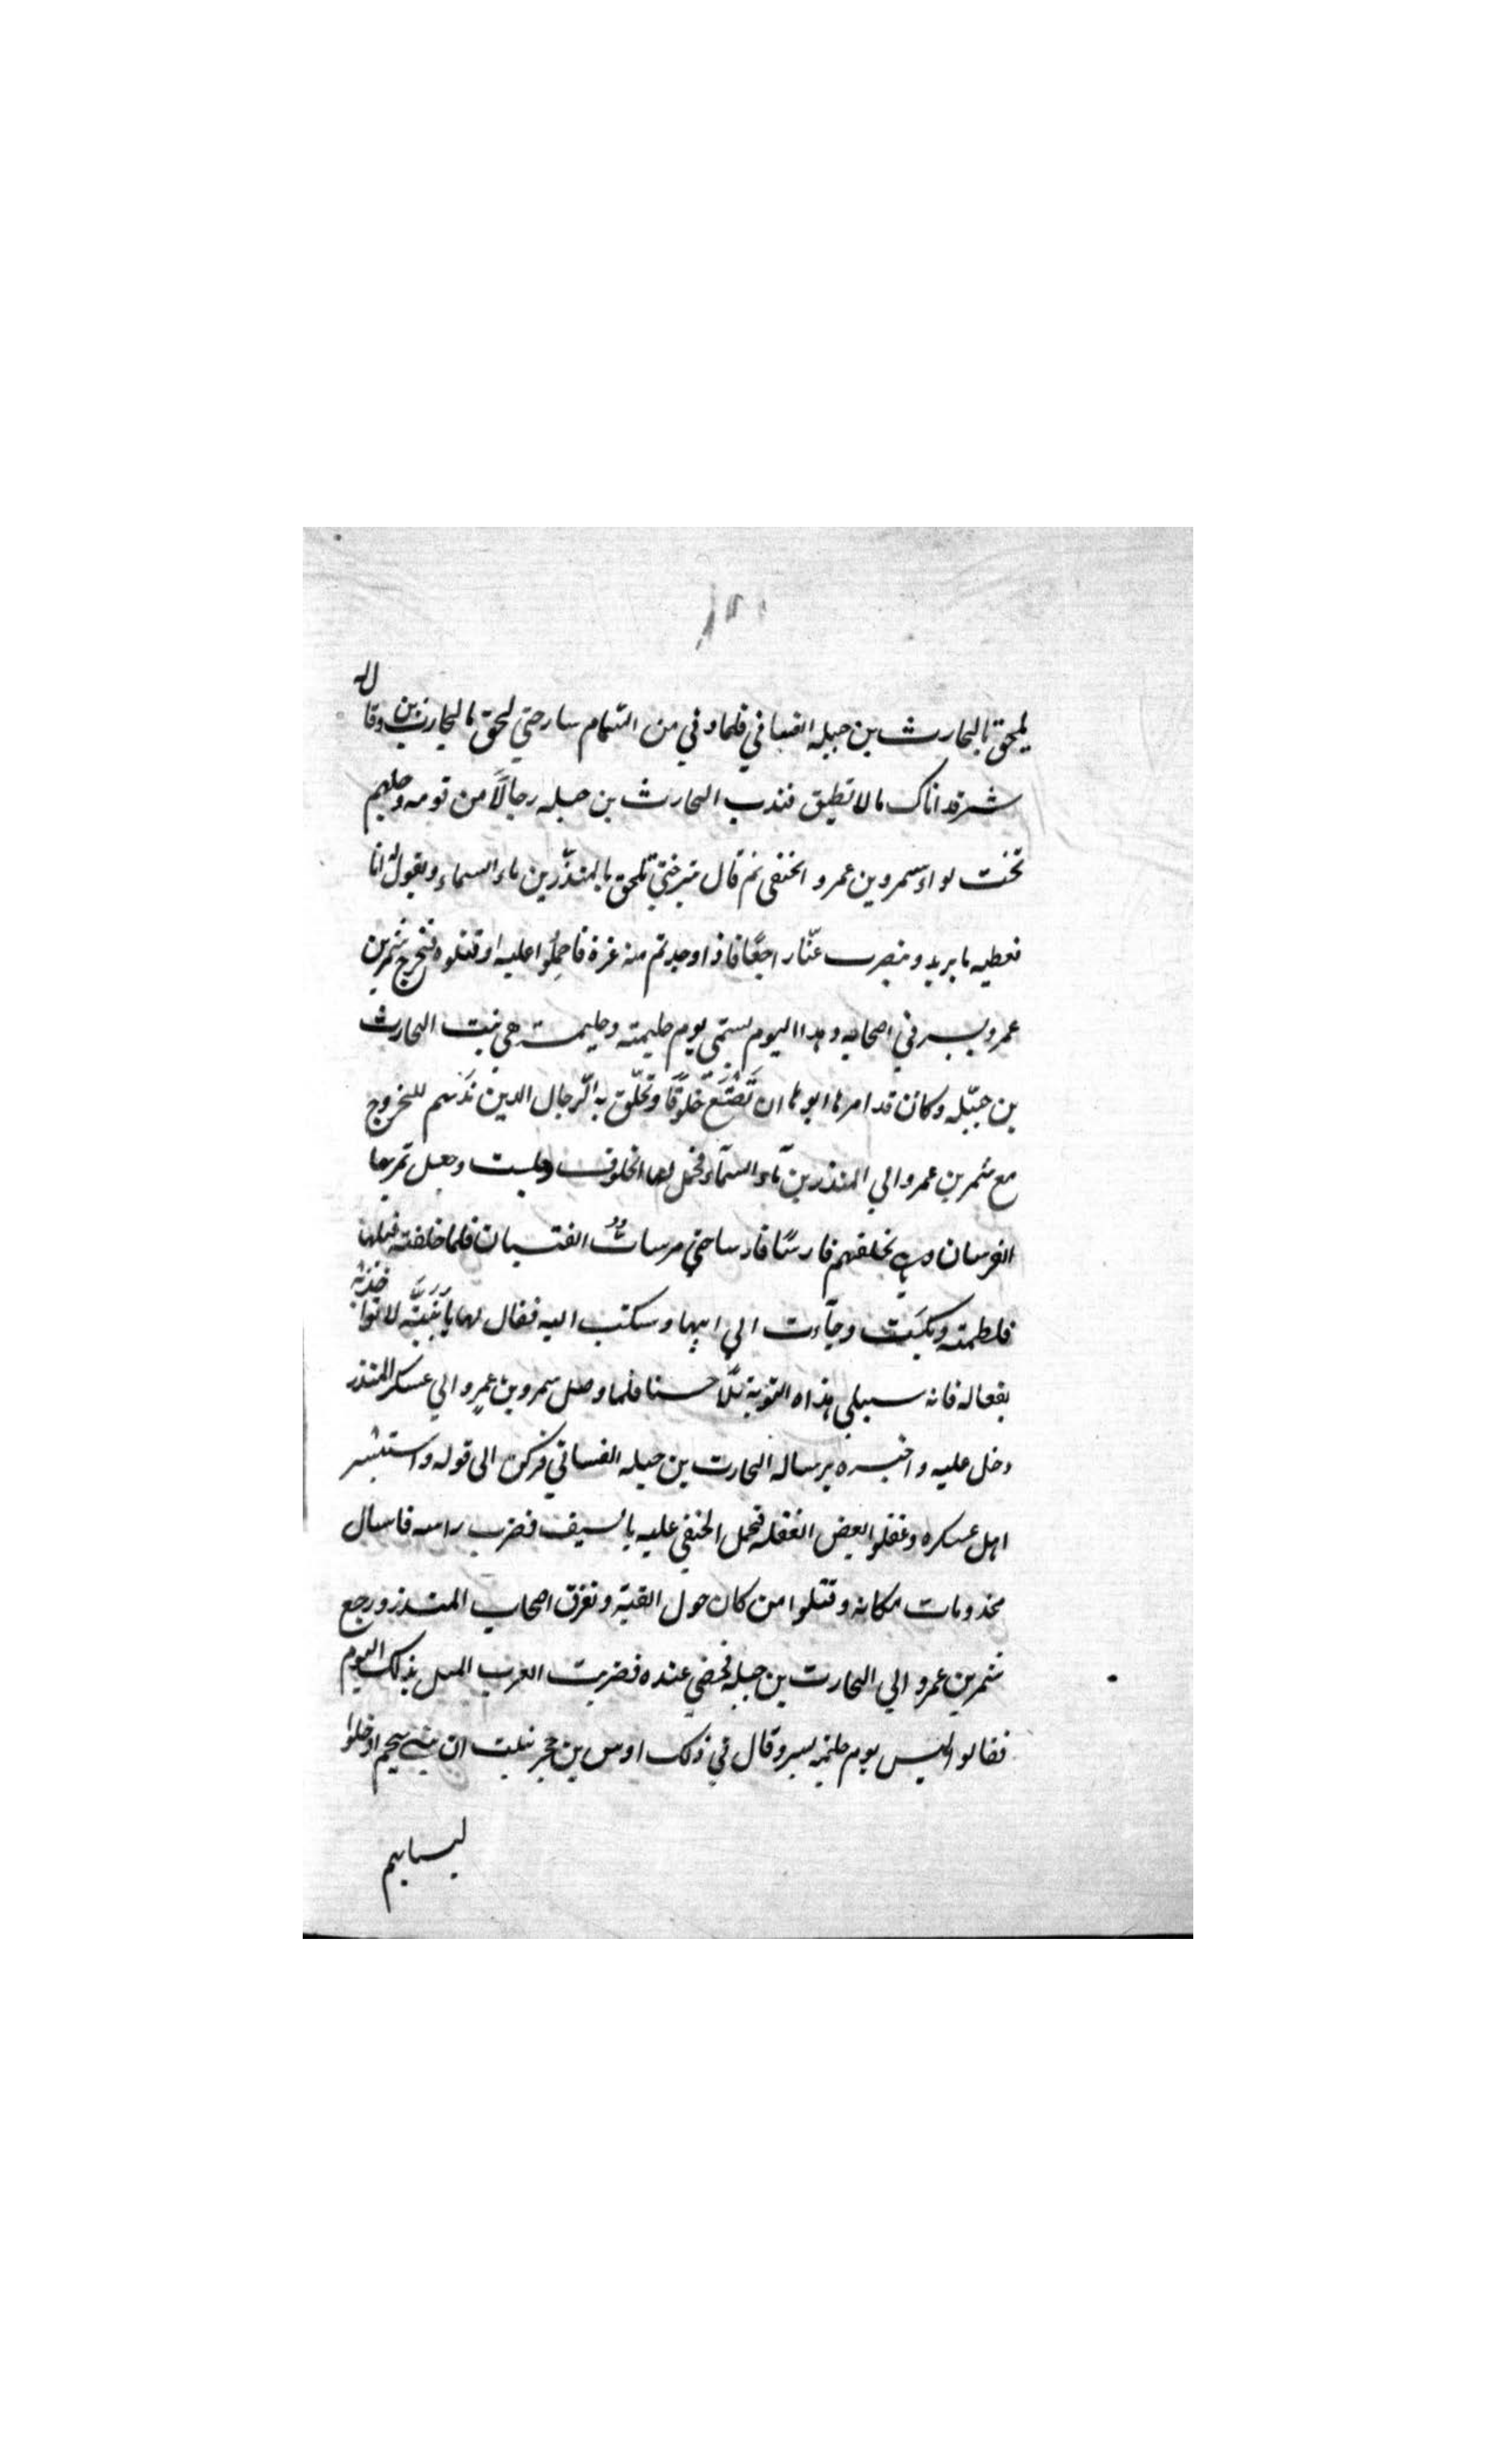 له
يلحق بالحارث بن جبله الغساني فلما دني من الشام سار حتي لحق بالحارث بن وقا
شمر قد اتاك ما لا تطيق فندب الحارث بن جبله رجالاً من قومه وجعلهم
تحت لواء سمرو بن عمرو الحنفى ثم قال سر حتي تلحق بالمنذر بن ماء السماء وتقول له انا
نعطيه ما يريد وينصرف عنّا راجعًا فاذا وجدتم منه غرة فاحملُوا عليه اوقتلوه فخرج شمر بن
عمرو يسر في اصحابه وهذا اليوم يسمّي يوم حليمته وحليمته هي بنت الحارث
بن جبّله وكان قد امرها ابوها ان تَصْنَع خلوقًا وتخلّق به الّرجال الدين ندبهم للخروج
مع شمر بن عمرو الي المنذر بن مآء السمآء فحمل لها الخلوف وجلست وجعل تمر بها
الفرسان تخلفهم فارسًا فارسا حتي مر شاب الفتيان فلما خلفته قبلها
فلطمته وبكَيَت وجآءت الي ابيها وسكتب اليه فقال لها يا بنيّه لا تواخذنه
بفعاله فانه سيبلي هذاه النوبة بلاً حسنا فلما وصل سمرو بن عمرٍو الي عسكر المنذر
دخل عليه واخبره برساله الحارت بن جبله الغساني فركن الى قوله واستبشر
اهل عسكره وغفلو بعض الغفله فحمل الحنفي عليه بالسيف فضرب راسه فاسال
مخه ومات مكانه وقتلوا من كان حول القبّة وتفرق اصحاب المنذر ورجع
شمر بن عمرو الي الحارت بن جبله فحضي عنده فضربت العرب المثل بذلك اليوم
فقالوا ليس يوم حليمه بسر وقال في ذلك اوس بن حجر نبئت ان بني سحيم ادخلوا
ابياتهم